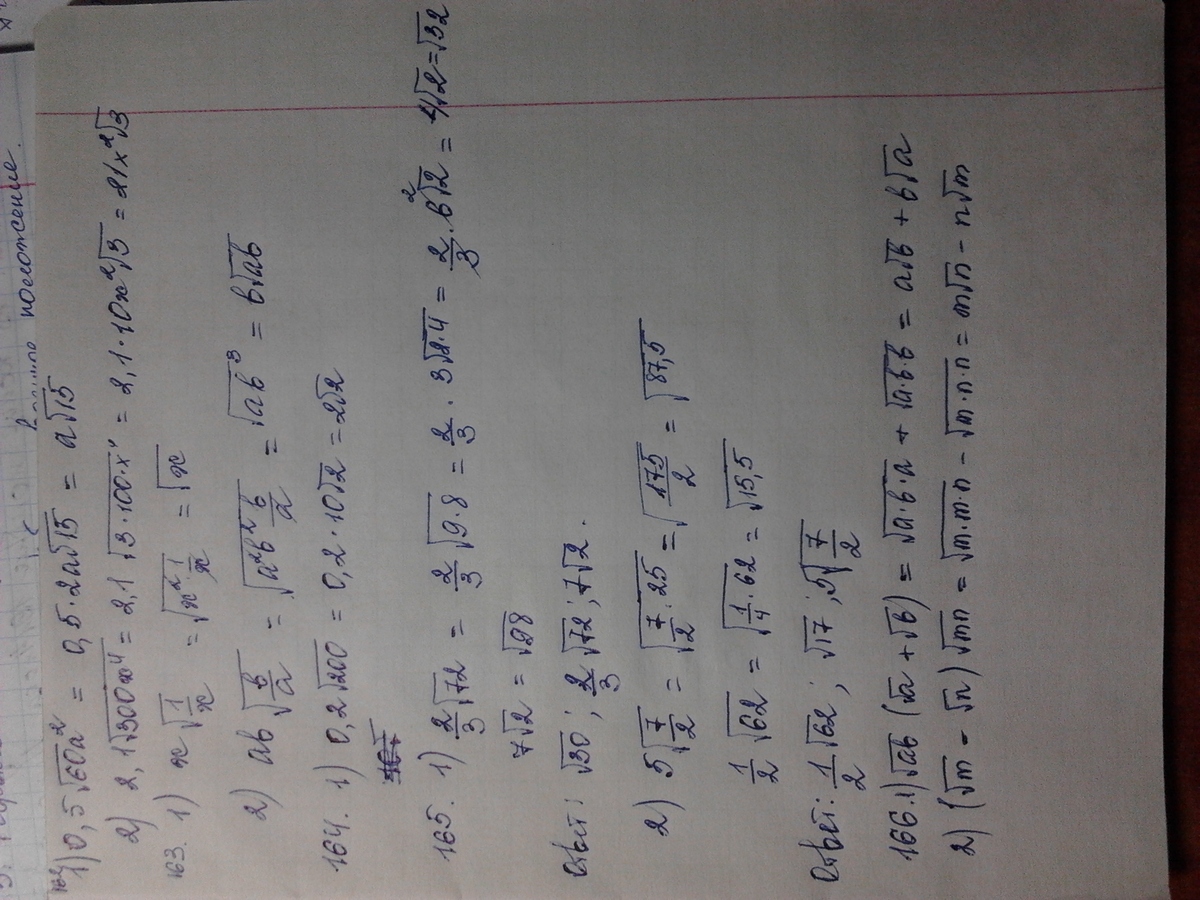 положение.
162
1) 0,5√60a² = 0,5·2a√15 = a√15
2) 2,1√300x⁴ = 2,1 √3·100·x⁴ = 2,1·10x²√3 = 21x²√3
163. 1) x√1/x = √x²·1/x = √x
2) ab√b/a = √a²b²b/a = √ab³ = b√ab
164. 1) 0,2√200 = 0,2·10√2 = 2√2
165. 1) 2/3√72 = 2/3√9·8 = 2/3·3√2·4 = 2/3·6√2 = 4√2=√32
7√2 = √98
Ответ: √30; 2/3√72; 7√2.
2) 5√7/2 = √7/2·25 = √175/2 = √87,5
1/2√62 = √1/4·62 = √15,5
Ответ: 1/2√62; √17; 5√7/2
166. 1) √ab (√a+√b) = √a·b·a + √a·b·b = a√b + b√a
2) (√m - √n) √mn = √m·m·n - √m·n·n = m√n - n√m